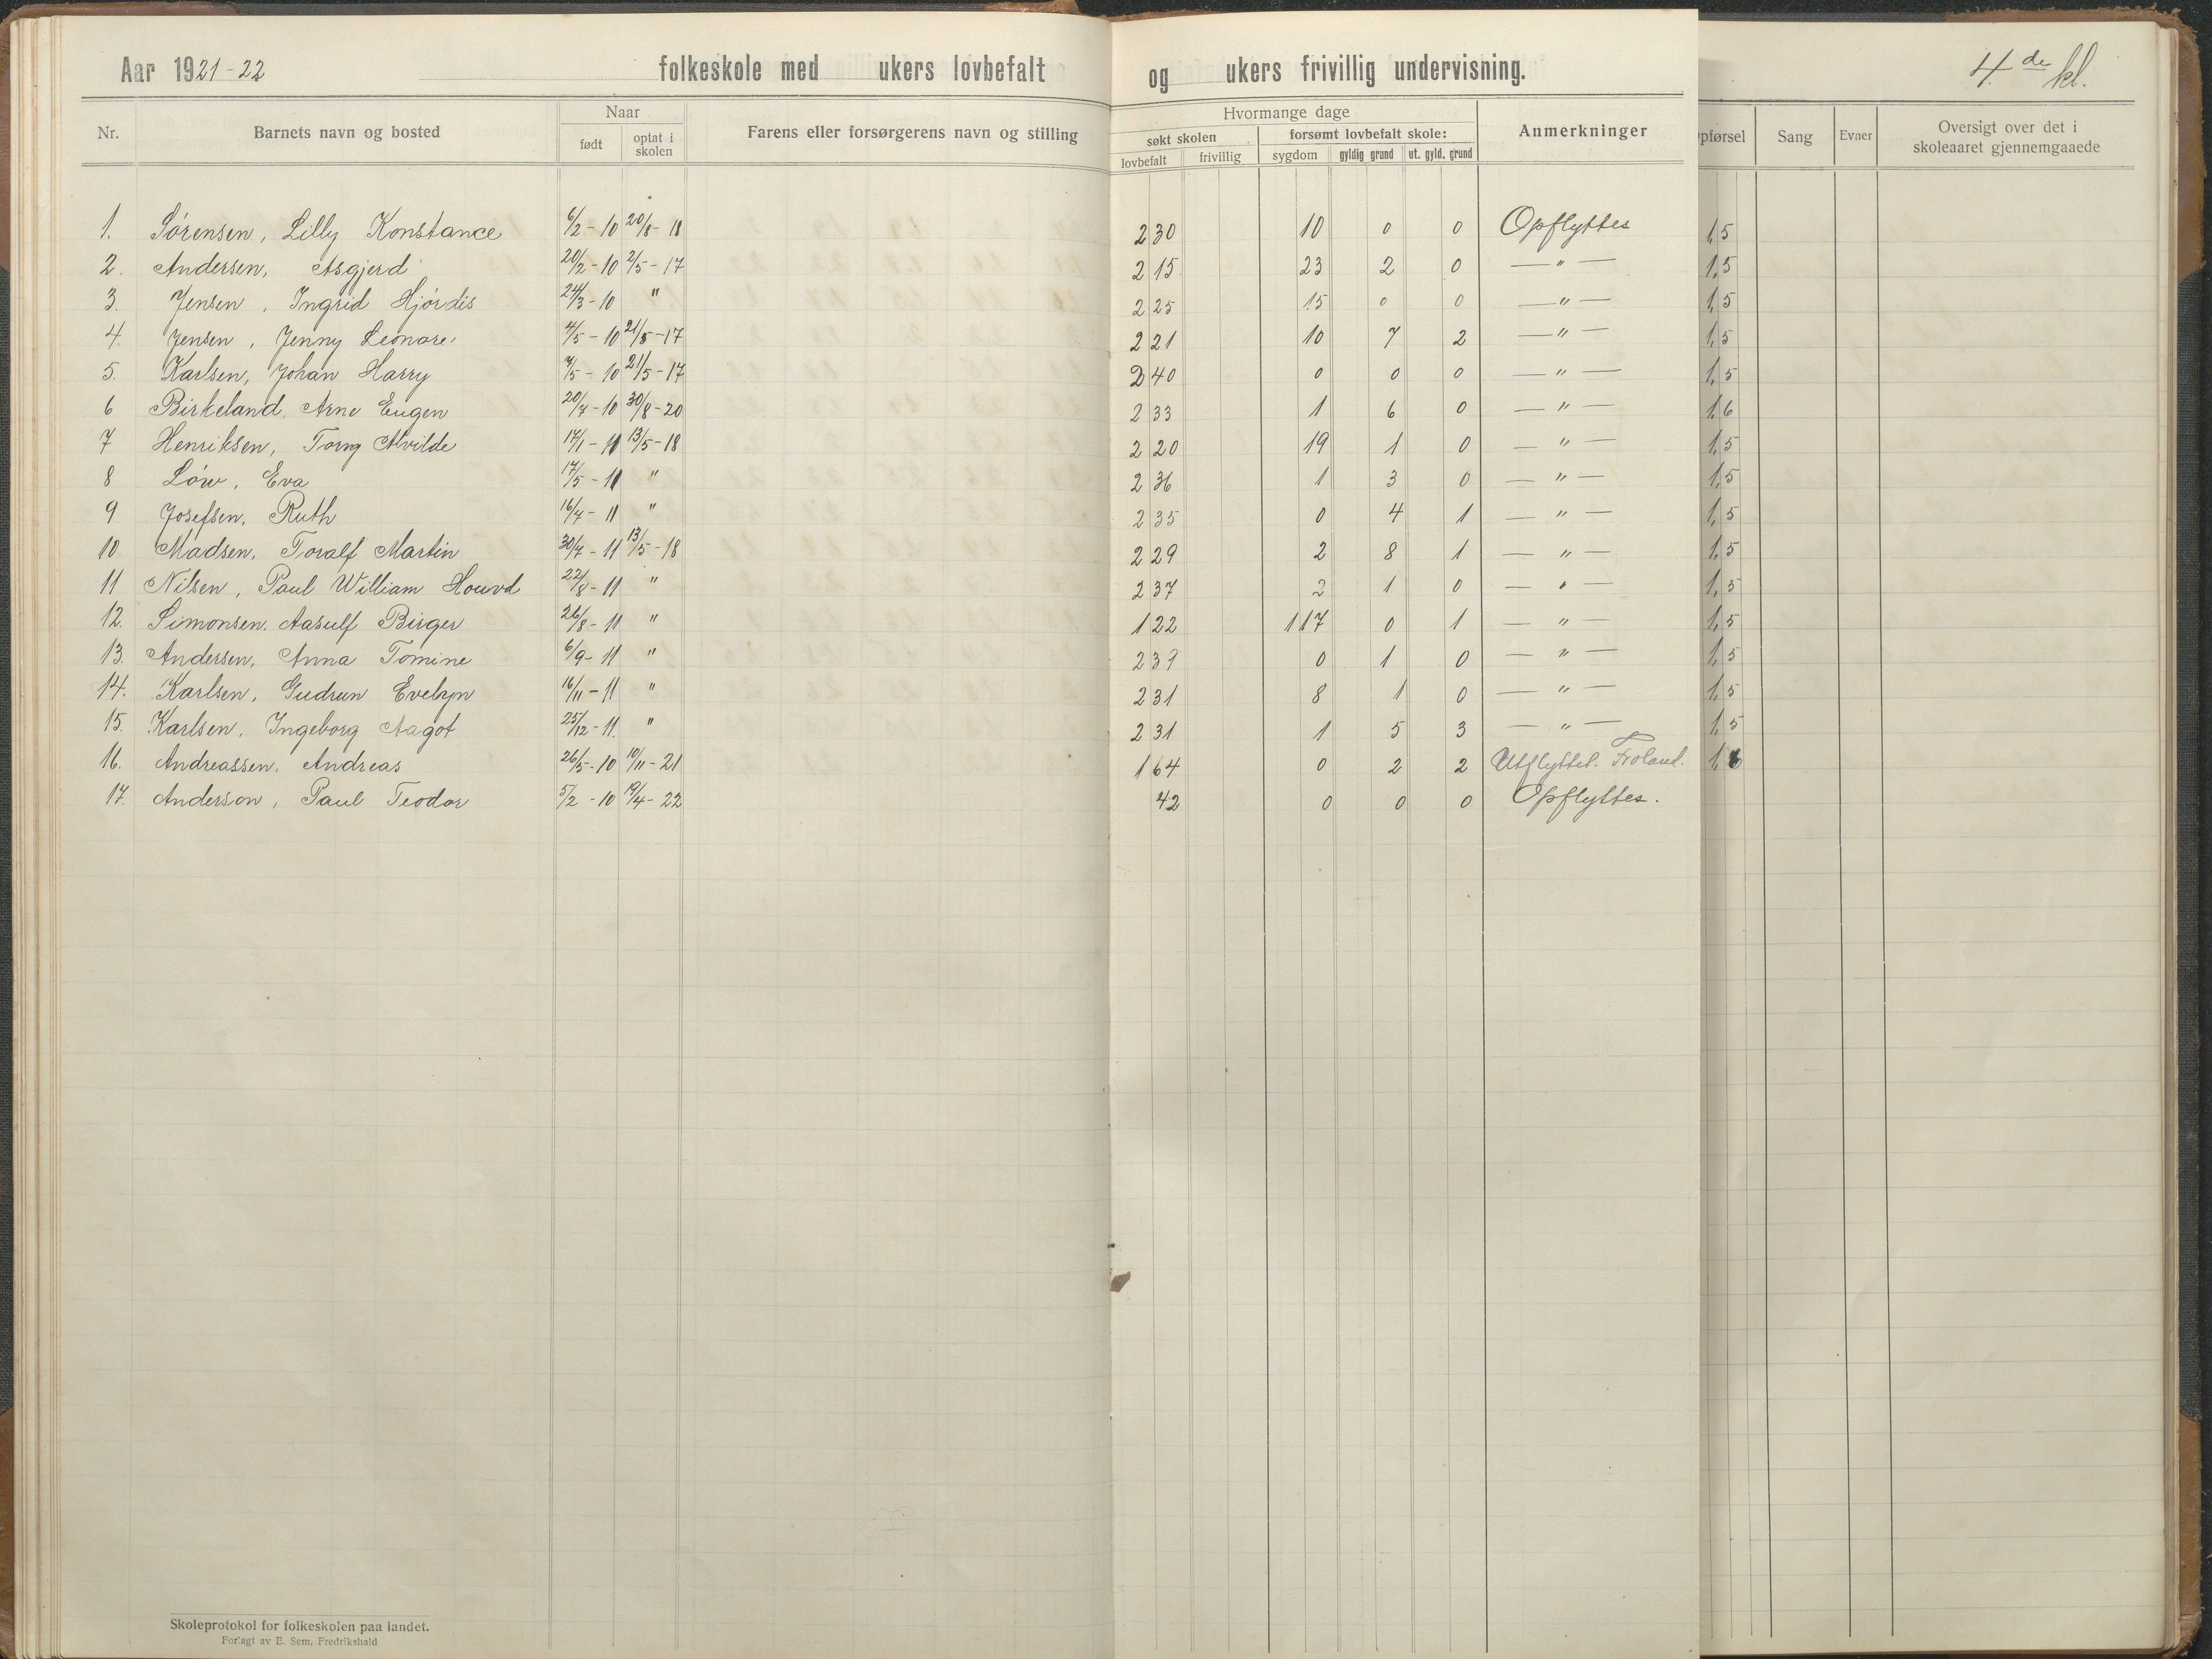 Aar 1921-22 folkeskole med ukers lovbefalt og ukers frivillig undervisning. 4.de kl.
Nr. Barnets navn og bosted Naar født optat i skolen Farens eller forsørgerens navn og stilling Hvormange dage søkt skolen lovbefalt frivillig forsømt lovbefalt skole: sygdom gyldig grund ut. gyld. grund Anmerkninger pførsel Sang Evner Oversigt over det i skoleaaret gjennemgaaede
1. Sørensen, Lilly Konstance 6/2-10 20/8-18 230 10 0 0 Opflyttes 1,5
2. Andersen, Asgjerd 20/2-10 2/5-17 215 23 2 0 —"— 1,5
3. Jensen, Ingrid Hjørdis 24/3-10 " 225 15 0 0 —"— 1,5
4. Jensen, Jenny Leonore 4/5-10 21/5-17 221 10 7 2 —"— 1,5
5. Karlsen, Johan Harry 7/5-10 21/5-17 240 0 0 0 —"— 1,5
6 Birkeland, Arne Eugen 20/7-10 30/8-20 233 1 6 0 —"— 1,6
7 Henriksen, Torny Alvilde 17/1-11 13/5-18 220 19 1 0 —"— 1,5
8 Löw, Eva 17/5-11 " 236 1 3 0 —"— 1,5
9 Josefsen, Ruth 16/7-11 " 235 0 4 1 —"— 1,5
10 Madsen, Toralf Martin 30/7-11 13/5-18 229 2 8 1 —"— 1,5
11 Nilsen, Paul William 22/8-11 " 237 2 1 0 —"— 1,5
12. Simonsen, Aasulf Birger 26/8-11 " 122 117 0 1 —"— 1,5
13. Andersen, Anna Tomine 6/9-11 " 239 0 1 0 —"— 1,5
14. Karlsen, Gudrun Evelyn 16/11-11 " 231 8 1 0 —"— 1,5
15. Karlsen, Ingeborg Aagot 25/12-11. " 231 1 5 3 —"— 1,5
16. Andreassen, Andreas 26/5-10 10/11-21 164 0 2 2 Utflyttet. Froland. 1,6
17. Anderson, Paul Teodor 5/2-10 19/4-22 42 0 0 0 Opflyttes.
Skoleprotokol for folkeskolen paa landet.
Forlagt av E. Sem, Fredrikshald